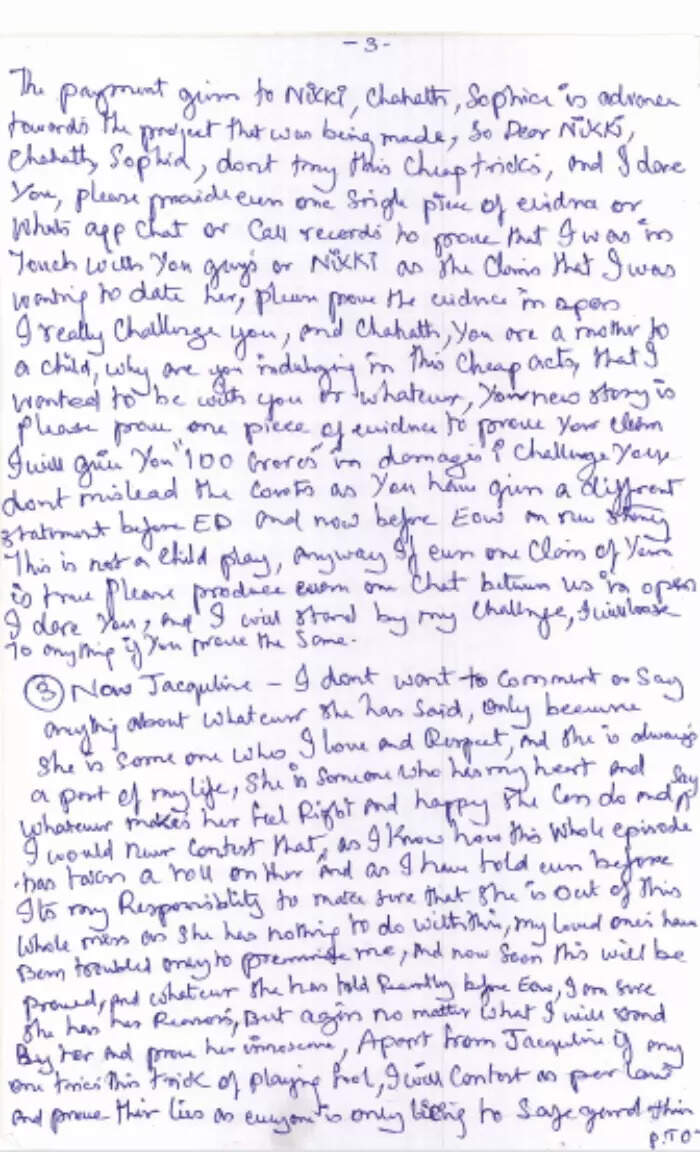 -3-
The payment given to Nikki, Chahatt, Sophia is advance
towards the project that was being made, So Dear Nikki,
Chahatt, Sophia, dont tray this Cheap tricks, and I dare
You, please provide even one Single piece of evidnce or
Whats app Chat or Call records to prove that I was in
Touch with You guy's or Nikki as she Claims that I was
wanting to date her, please prove the evidence in open
I really Challenge you, and Chahatt, You are a mother to
a child, why are you indulging in this Cheap acts, that I
wanted to be with you or whatever, Your new story is
Please prove one piece of evidence to prove Your claim
I will give You "100 Crores" in damages? Challenge You
dont mislead the Courts as You have given a different
statment before ED and now before Eow an new story
This is not a Child play, anyway If even one Claim of Yours
is true Please produce even one Chat between us in open
I dare You, and I will stand by my Challenge, I will loose
To anything if You prove the Same.
③ Now Jacquline - I dont want to Comment or Say
anything about whatever she has Said, only because
She is Some one who I love and Respect, And she is always
a part of my life, She is Someone who has my heart and
Whatever makes her feel Right And happy She Can do and Say
I would never Contest that, as I Know how this whole episode
has taken a roll on her And as I have told even before
Its my Responsiblity to make sure that She is out of this
whole mess as She has nothing to do with this, my loved one's have
Been troubled only to me, And now Soon this will be
proved, and whatever She has told Recently before Eow, I am sure
She has her Reasons, But again no matter what I will stand
By her And prove her innosence, Apart from Jacquline if any
one tries this trick of playing fool, I will Contest as per law
and prove their lies as everyone is only to Safe gaurd
P.T.O